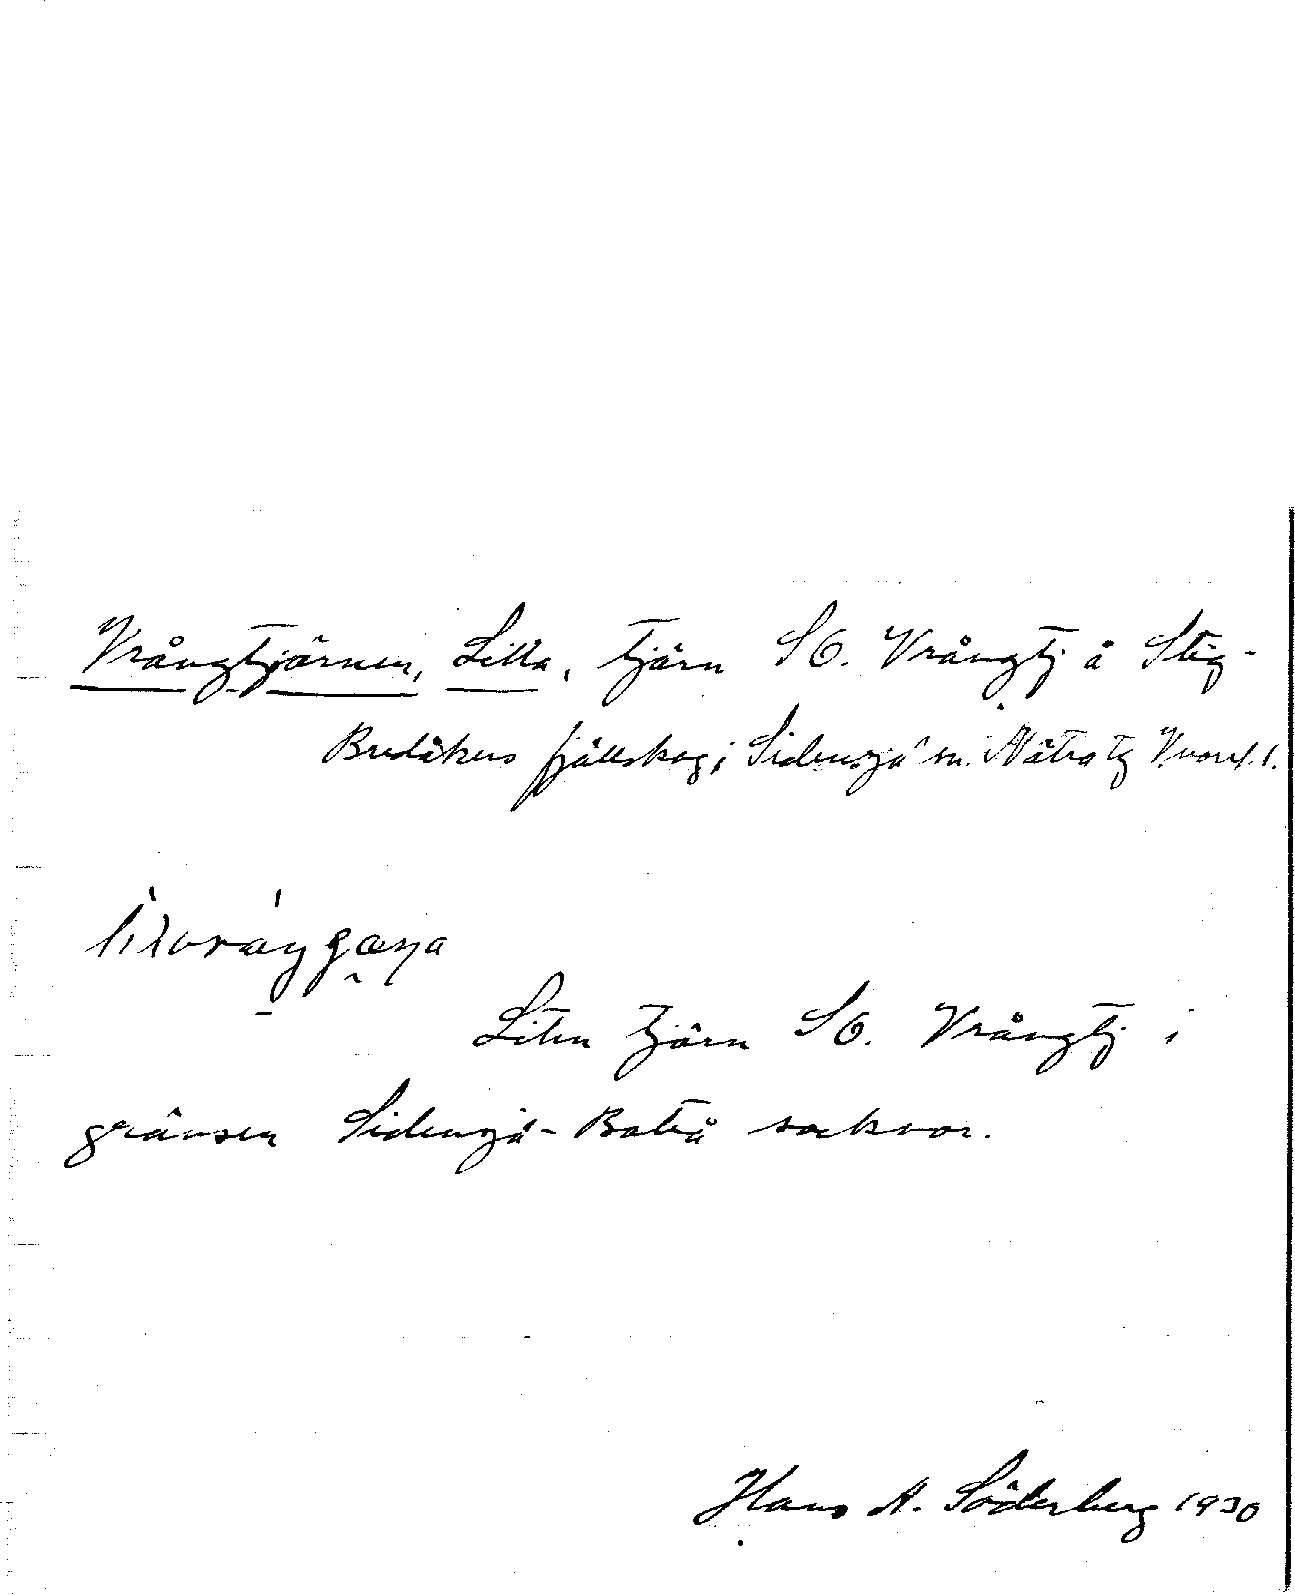 Vrångtjärnen, Lilla, tjärn SO. Vrångtj å Stig-
Bredåkers fjällskog; Sidensjö sn. Nätra tg V.norrl. l.
Liten tjärn SO. Vrångtj i
gränsen Sidensjö-Boteå socknar.
Hans A. Söderberg 1930